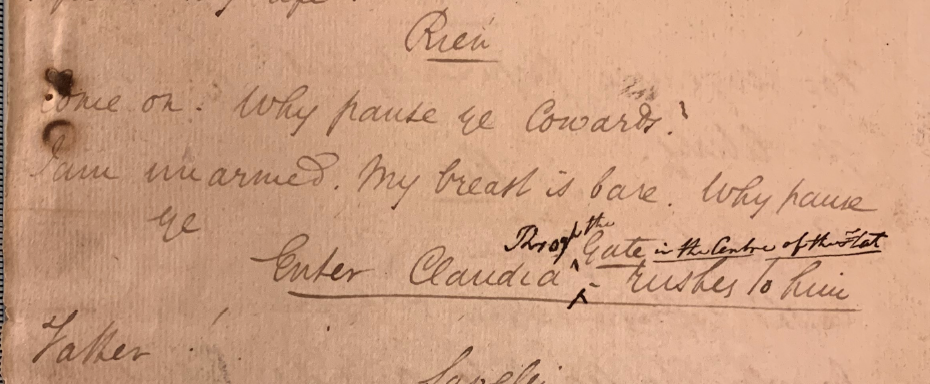 Rien
Come on. Why pause ye Cowards?
I am unarmed. My breast is bare. Why pause
ye
Thro' the Gate in the Centre of the Flat
Enter Claudia - rushes to him
Father!